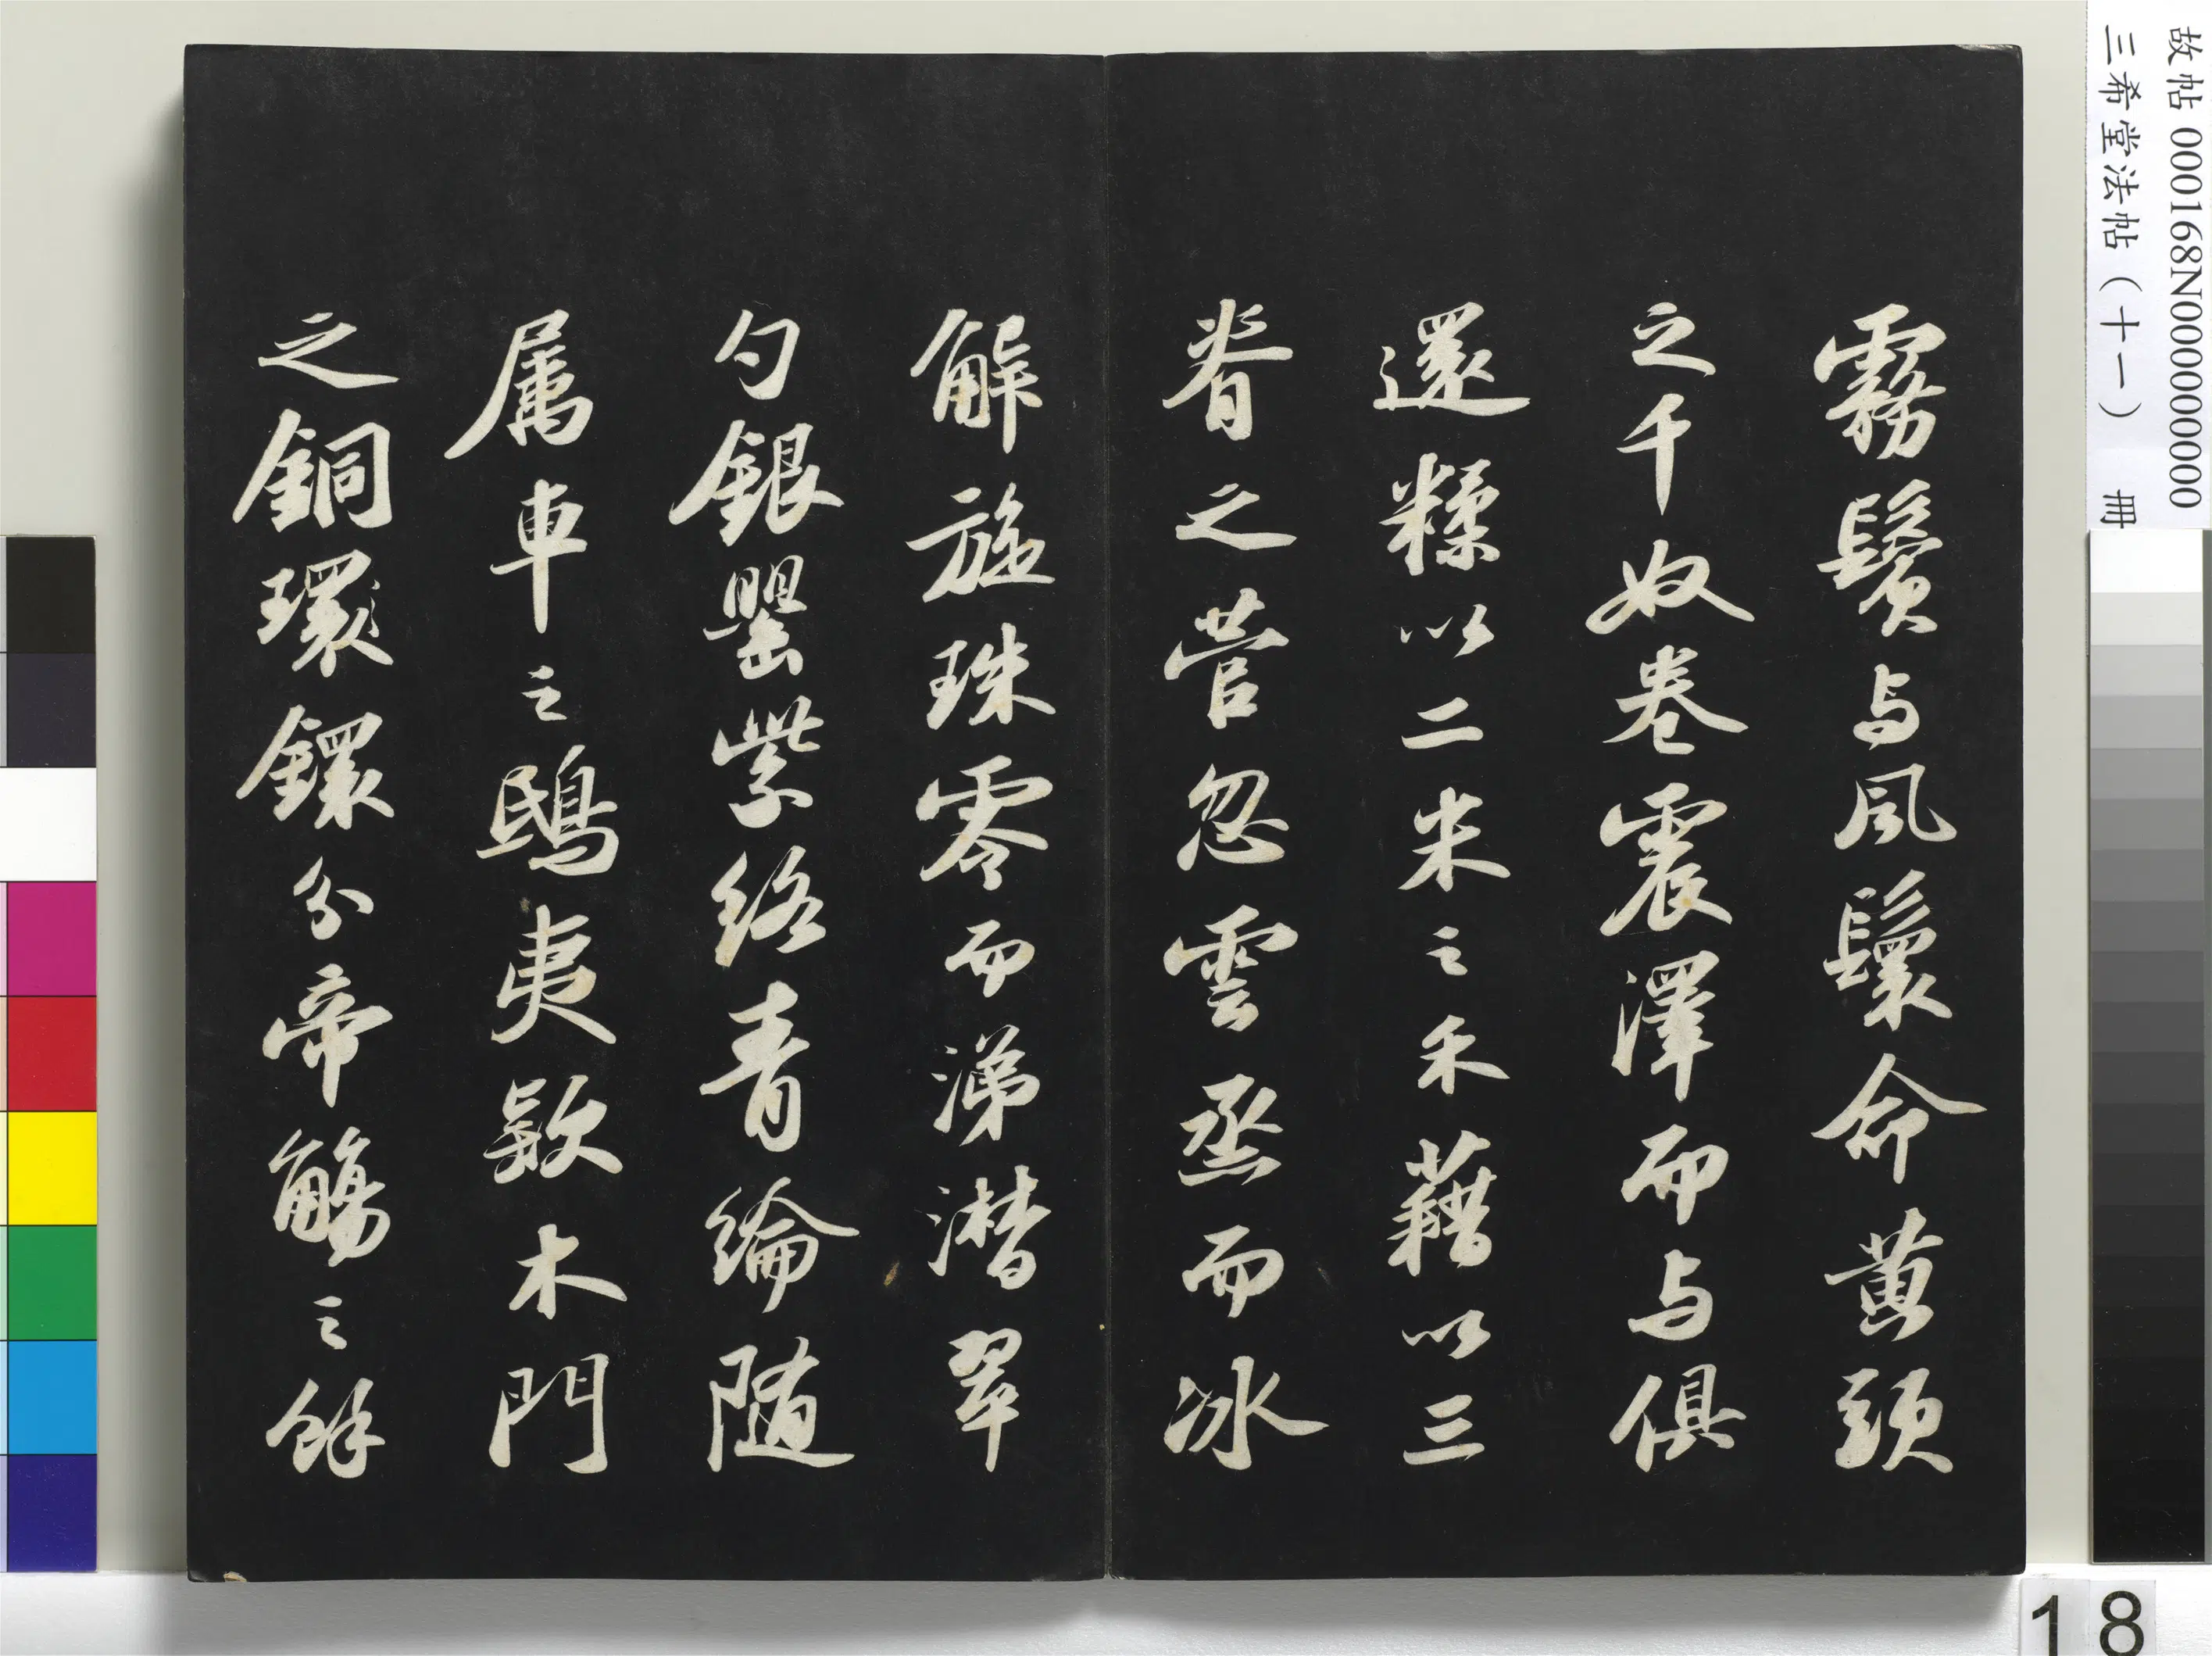 故帖 000168N000000000
三希堂法帖（十一） 册
霧鬢与風鬟命黄頭
之千奴卷震澤而与俱
還糅以二米之禾藉以三
脊之菅忽雲烝而冰
解旋珠零而涕潸翠
勺銀罌紫絡青綸随
属車之鴟夷款木門
之銅環鐶分帝觴之餘
18